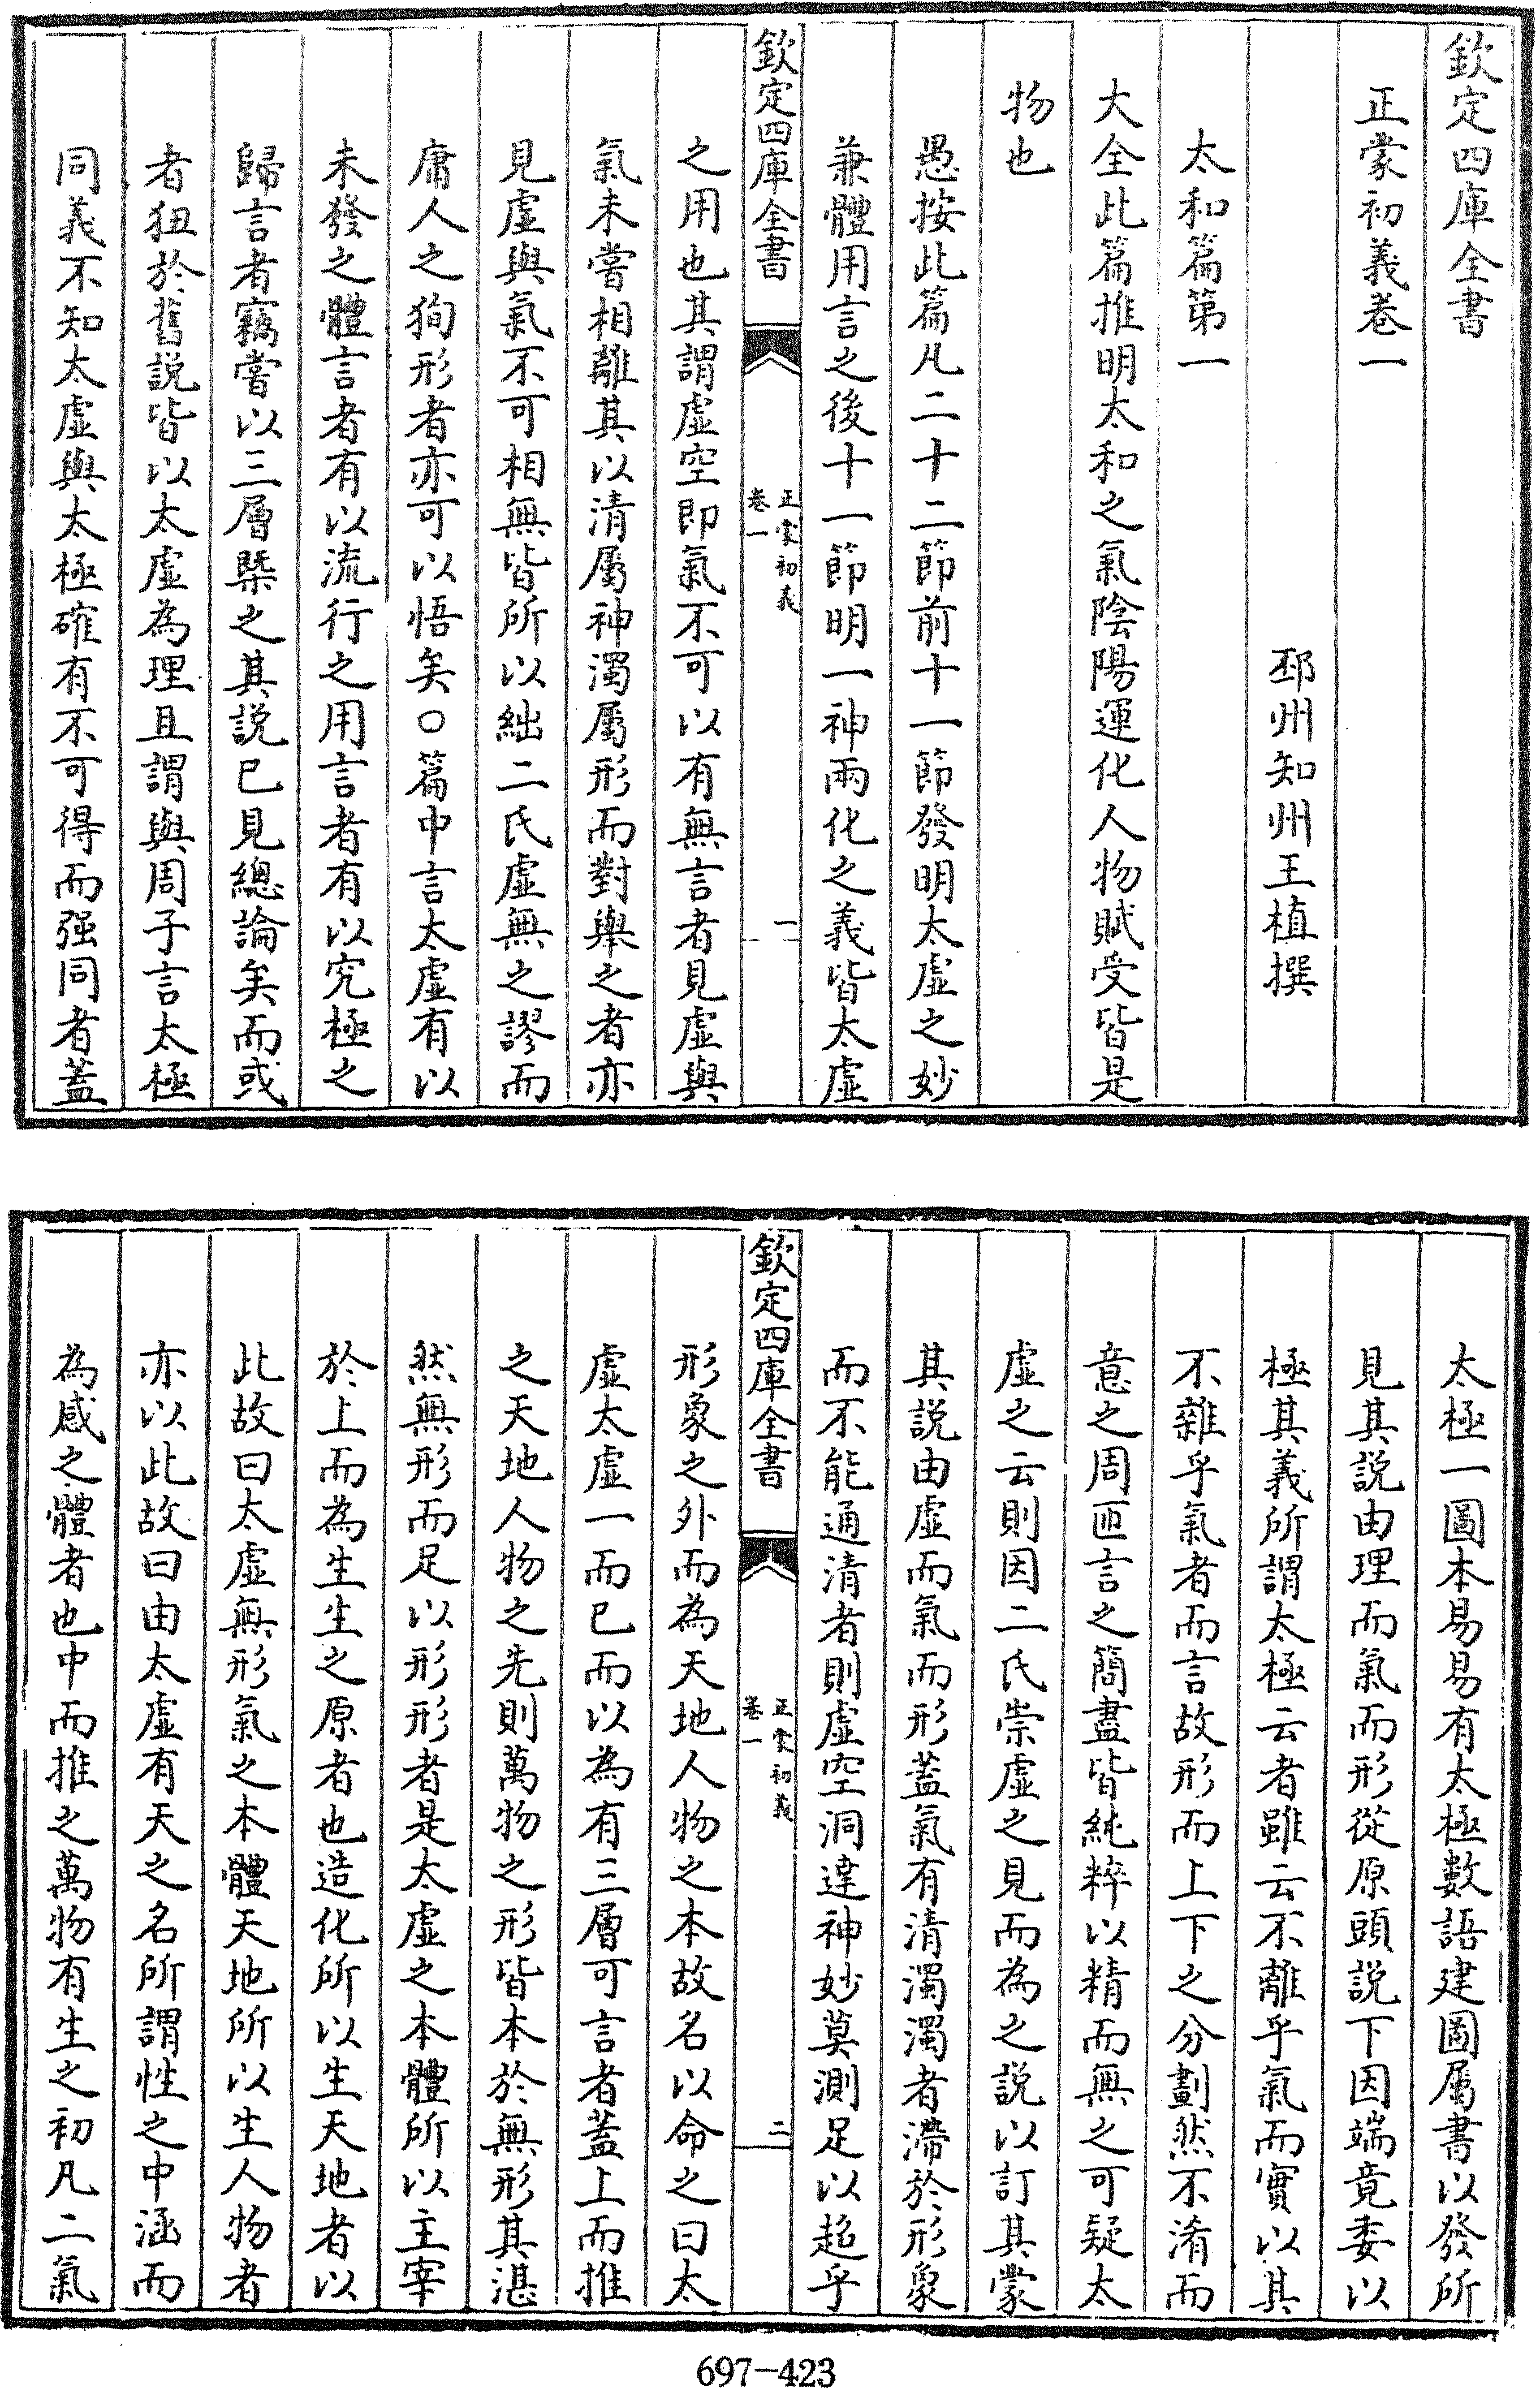 欽定四庫全書
正蒙初義卷一
邳州知州王植撰
太和篇第一
大全此篇推明太和之氣陰陽運化人物賦受皆是
物也
愚按此篇凡二十二節前十一節發明太虛之妙
兼體用言之後十一節明一神兩化之義皆太虛
欽定四庫全書
正蒙初義
卷一
一
之用也其謂虛空即氣不可以有無言者見虛與
氣未嘗相離其以清屬神濁屬形而對舉之者亦
見虛與氣不可相無皆所以絀二氏虛無之謬而
庸人之狥形者亦可以悟矣○篇中言太虛有以
未發之體言者有以流行之用言者有以究極之
歸言者竊嘗以三層槩之其說已見總論矣而或
者狃於舊説皆以太虛為理且謂與周子言太極
同義不知太虛與太極確有不可得而强同者蓋
太極一圖本易易有太極數語建圖屬書以發所
見其説由理而氣而形從原頭説下因端竟委以
極其義所謂太極云者雖云不離乎氣而實以其
不雜乎氣者而言故形而上下之分劃然不淆而
意之周匝言之簡盡皆純粹以精而無之可疑太
虛之云則因二氏崇虛之見而為之説以訂其蒙
其説由虛而氣而形蓋氣有清濁濁者滯於形象
而不能通清者則虛空洞達神妙莫測足以超乎
欽定四庫全書
正蒙初義
卷一
二
形象之外而為天地人物之本故名以命之曰太
虛太虛一而已而以為有三層可言者蓋上而推
之天地人物之先則萬物之形皆本於無形其湛
然無形而足以形形者是太虛之本體所以主宰
於上而為生生之原者也造化所以生天地者以
此故曰太虛無形氣之本體天地所以生人物者
亦以此故曰由太虛有天之名所謂性之中涵而
為感之體者也中而推之萬物有生之初凡二氣
697-423